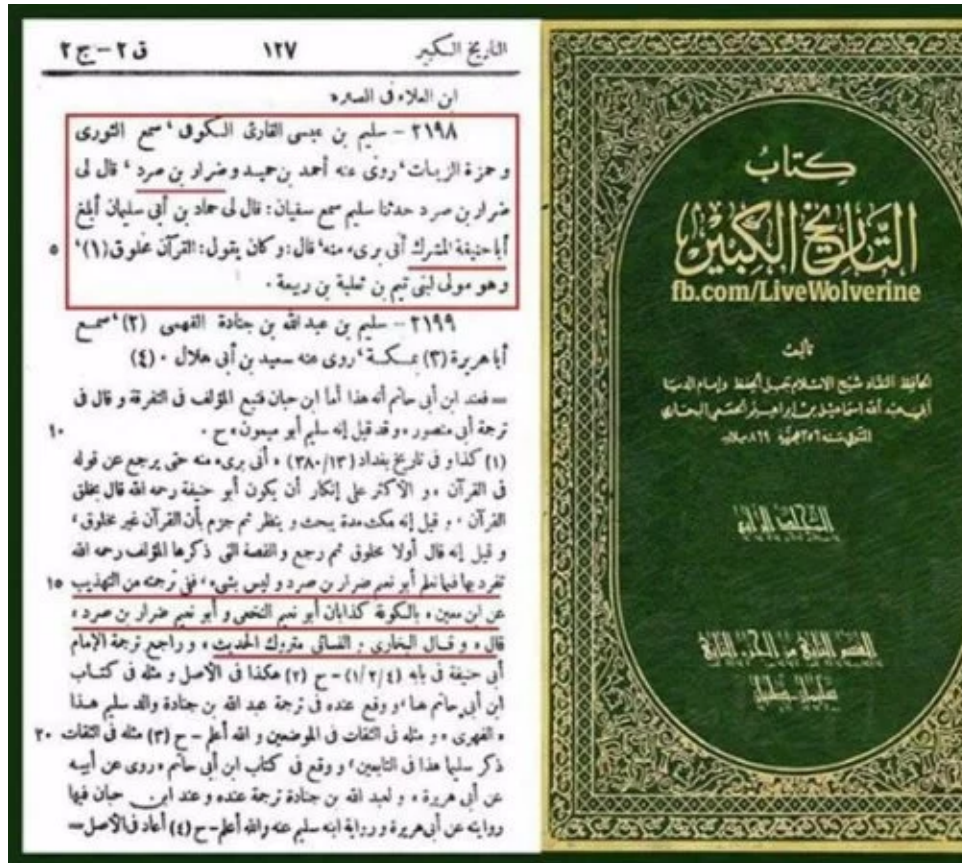 التاريخ الكبير ١٢٧ ق ٢ – ج ٢
ابن العلاء في
٢١٩٨ – سليم بن عيسى القارئ الكوفى، سمع الثورى
و حمزة الزيات، روى عنه أحمد بن حميد و ضرار بن صرد، قال لى
ضرار بن صرد حدثنا سليم سمع سفيان: قال لى حماد بن أبى سليمان أبلغ
أبا حنيفة المشرك أنى برىء منه، قال: و كان يقول: القرآن مخلوق (١)، ٥
و هو مولى لبنى تيم بن ثعلبة بن ربيعة .
٢١٩٩ – سليم بن عبد الله بن جنادة الفهمى (٢)، سمع
أبا هريرة (٣) بمكة، روى عنه سعيد بن أبى هلال . (٤)
= فعند ابن أبى حاتم أنه هذا أما ابن حبان فتبع المؤلف فى التفرقة و قال فى
ترجمة أبى منصور و قد قيل إنه سليم أبو ميمون، ح . ١٠
(١) كذا و فى تاريخ بغداد (٣٨٠/١٣) ، أنى برىء منه حتى يرجع عن قوله
فى القرآن ، و الأكثر على إنكار أن يكون أبو حنيفة رحمه الله قال بخلق
القرآن ، و قيل إنه مكث مدة يبحث و ينظر ثم جزم بأن القرآن غير مخلوق،
و قيل إنه قال أولا مخلوق ثم رجع و القصة التى ذكرها المؤلف رحمه الله
تفرد بها فيما نعلم أبو نعيم ضرار بن صرد و ليس بشىء، ففى ترجمته من التهذيب ١٥
عن ابن معين ، بالكوفة كذابان أبو نعيم النخعى و أبو نعيم ضرار بن صرد ،
قال ، و قال البخارى و النسائى متروك الحديث ، و راجع ترجمة الإمام
أبى حنيفة فى بابه (١/٢/٤) – ح (٢) هكذا فى الأصل و مثله فى كتاب
ابن أبى حاتم هنا، و وقع عنده فى ترجمة عبد الله بن جنادة والد سليم هذا
، الفهرى ، و مثله فى الثقات فى الموضعين و الله أعلم – ح (٣) مثله فى الثقات ٢٠
ذكر سليما هذا فى التابعين، و وقع فى كتاب ابن أبى حاتم ، روى عن أبيه
عن أبى هريرة ، و لعبد الله بن جنادة ترجمة عنده و عند ابن حبان فيها
روايته عن أبى هريرة و رواية ابنه سليم عنه و الله أعلم – ح (٤) أعاد فى الأصل =
كتاب
التاريخ الكبير
fb.com/LiveWolverine
تأليف
الحافظ النقاد شيخ الإسلام جبل الحفظ وإمام الدنيا
أبي عبد الله إسماعيل بن إبراهيم الجعفي البخاري
المتوفى سنة ٢٥٦ هجرية ٨٦٩ ميلادية